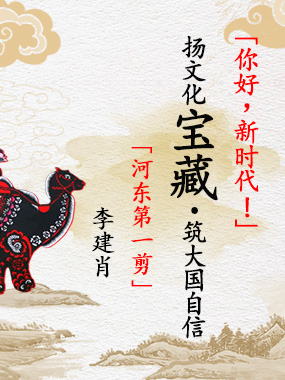 「你好，新时代！」
扬文化宝藏·筑大国自信
「河东第一剪」
李建肖